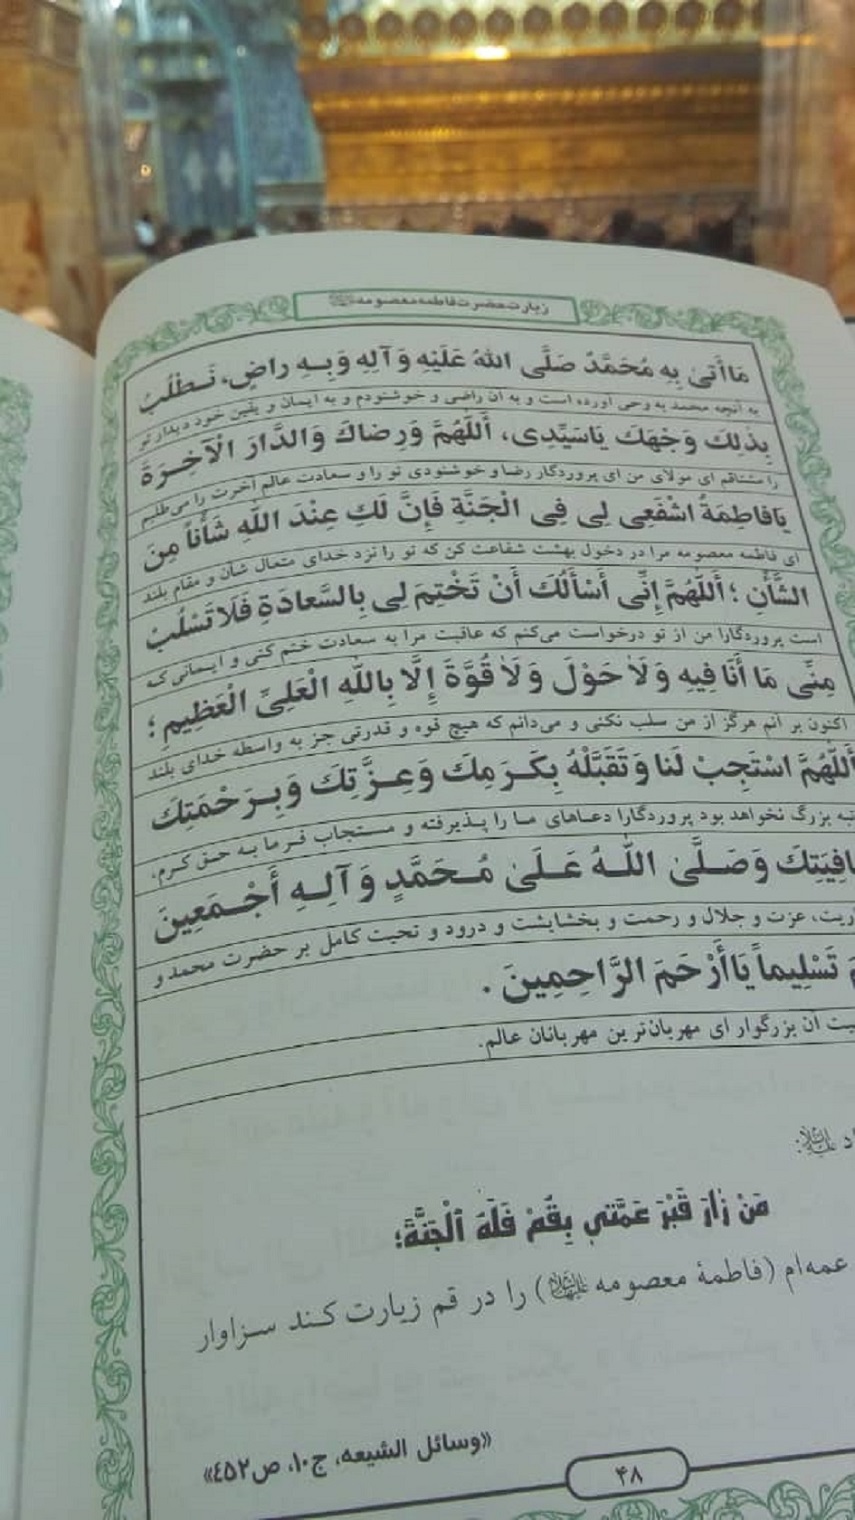 زیارت حضرت فاطمه معصومه
مَاأَتىٰ بِهِ مُحَمَّدٌ صَلَّى اللهُ عَلَيْهِ وَآلِهِ وَبِـهِ راضٍ، نَـطْلُبُ
به آنچه محمد به وحی آورده است و به آن راضی و خوشنودم و به ایمان و یقین خود دیدار تو
بِذٰلِكَ وَجْهَكَ يَاسَيِّدِى، أَللّٰهُمَّ وَرِضاكَ وَالدَّارَ الْآخِـرَةَ
را مشتاقم ای مولای من ای پروردگار رضا و خوشنودی تو را و سعادت عالم آخرت را می‌طلبم
يَافاطِمَةُ اشْفَعِى لِى فِى الْجَنَّةِ فَإِنَّ لَكِ عِنْدَ اللّٰهِ شَأْناً مِنَ
ای فاطمه معصومه مرا در دخول بهشت شفاعت کن که تو را نزد خدای متعال شأن و مقام بلند
الشَّأْنِ ؛ أَللّٰهُمَّ إِنِّى أَسْأَلُكَ أَنْ تَخْتِمَ لِى بِالسَّعادَةِ فَلَا تَسْلُبْ
است پروردگارا من از تو درخواست می‌کنم که عاقبت مرا به سعادت ختم کنی و ایمانی که
مِنِّى مَا أَنَا فِيهِ وَلَا حَوْلَ وَلَا قُوَّةَ إِلَّا بِاللّٰهِ الْعَلِىِّ الْعَظِيمِ ؛
اکنون بر آنم هرگز از من سلب نکنی و می‌دانم که هیچ قوه و قدرتی جز به واسطه خدای بلند
أَللّٰهُمَّ اسْتَجِبْ لَنا وَتَقَبَّلْهُ بِكَـرَمِكَ وَعِـزَّتِكَ وَبِـرَحْمَتِكَ
بزرگ نخواهد بود پروردگارا دعاهای ما را پـذیرفته و مستجاب فرما به حق کرم،
وَصَلَّىٰ اللّٰـهُ عَـلَىٰ مُـحَمَّدٍ وَآلِـهِ أَجْـمَعِينَ
عزت و جلال و رحمت و بخشایشت و درود و تحیت کامل بر حضرت محمد و
تَسْلِيماً يَاأَرْحَمَ الرَّاحِمِينَ .
آن بزرگوار ای مهربان‌ترین مهربانان عالم.
مَنْ زارَ قَبْرَ عَمَّتي بِقُمْ فَلَهُ ٱلْجَنَّةُ؛
عمه‌ام (فاطمهٔ معصومه) را در قم زیارت کند سزاوار
«وسائل الشیعه، ج۱۰، ص۴۵۲»
۴۸